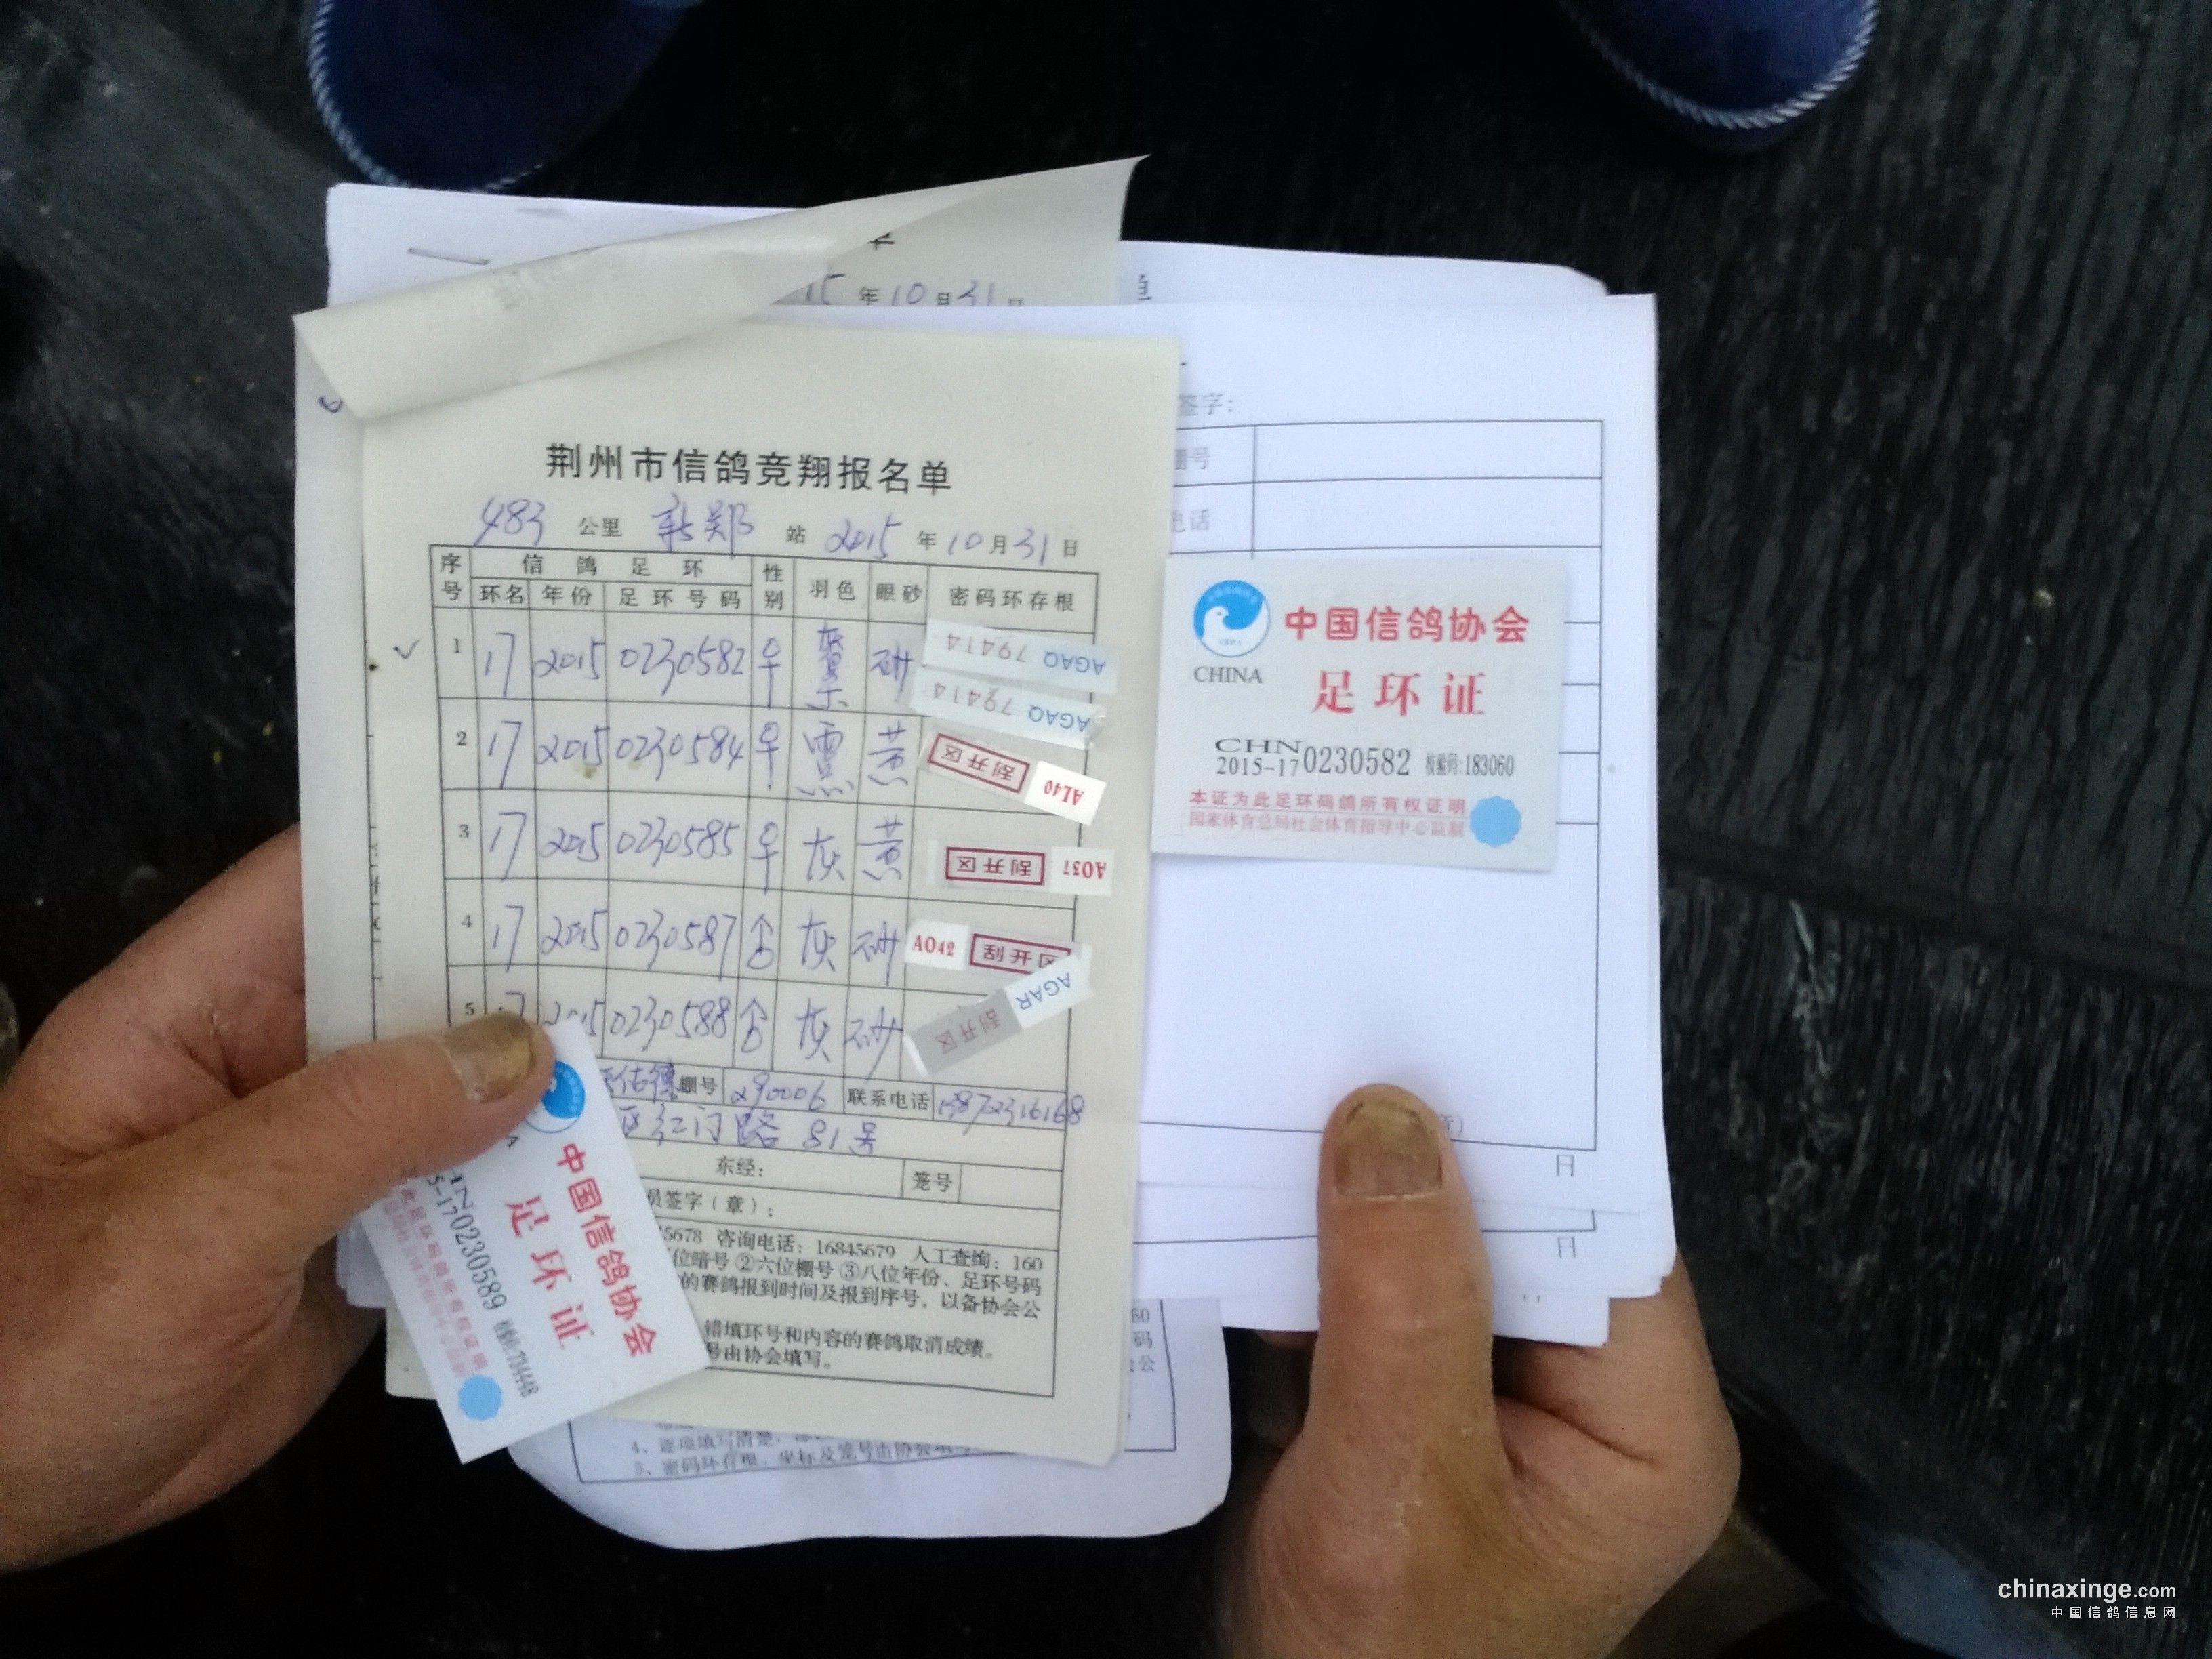 单
15年10月31日
单
签字:
棚号
电话
荆州市信鸽竞翔报名单
483 公里 新郑 站 2015 年 10 月 31 日
序号 信鸽足环 性别 羽色 眼砂 密码环存根
环名 年份 足环号码
1 17 2015 0230582 ♀ 砂 AGAQ 79414
AGAQ 79414
2 17 2015 0230584 ♀ 黄 刮开区 A140
3 17 2015 0230585 ♀ 灰 黄 刮开区 A037
4 17 2015 0230587 灰 砂 A042 刮开区
5 17 2015 0230588 灰 砂 刮开区 AGAR
佑德 棚号 290006 联系电话 13872316168
区红门路 81号
东经: 笼号
员签字(章):
5678 咨询电话: 16845679 人工查询: 160
位暗号 ②六位棚号 ③八位年份、足环号码
的赛鸽报到时间及报到序号,以备协会公
错填环号和内容的赛鸽取消成绩。
号由协会填写。
中国信鸽协会
CHINA
足环证
CHN
2015-17 0230582 校验码:183060
本证为此足环码鸽所有权证明
国家体育总局社会体育指导中心监制
章)
日
日
中国信鸽协会
足环证
HN
5-17 0230589 校验码:734448
此足环码鸽所有权证明
60
码
公
4、逐项填写清楚,
5、密码环存根、坐标及笼号由协会填写
chinaxinge.com
中国信鸽信息网